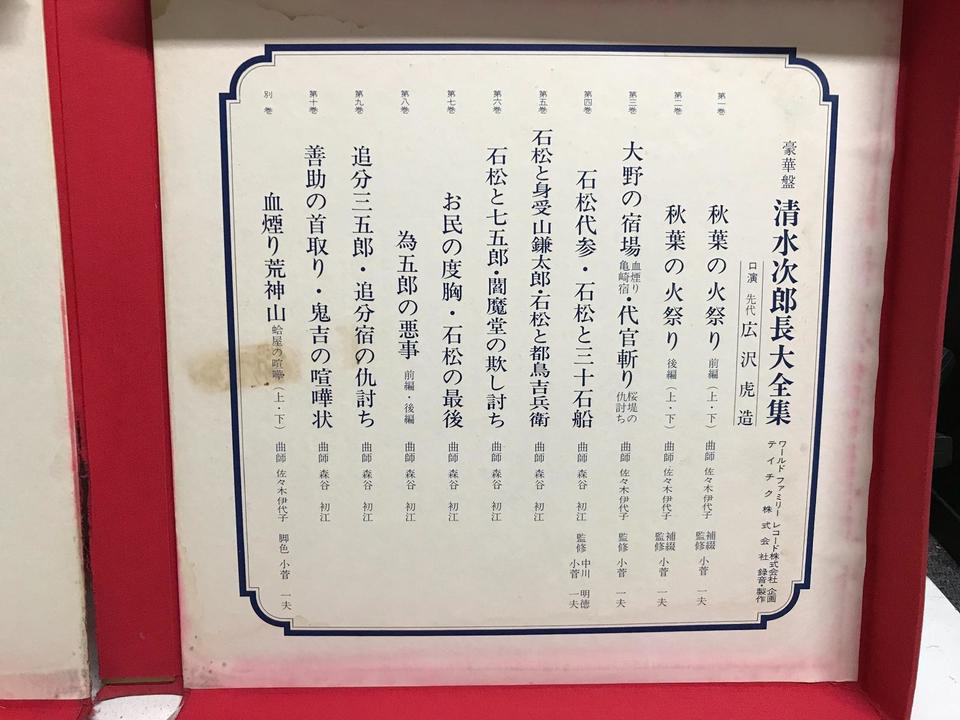 豪華盤 清水次郎長大全集
口演 先代 広沢虎造
ワールドファミリーレコード株式会社 企画
テイチク株式会社 録音・製作
第一巻 秋葉の火祭り 前編(上・下) 曲師 佐々木伊代子 補綴 監修 小菅一夫
第二巻 秋葉の火祭り 後編(上・下) 曲師 佐々木伊代子 補綴 監修 小菅一夫
第三巻 大野の宿場 血煙り亀崎宿・代官斬り 桜堤の仇討ち 曲師 佐々木伊代子 監修 小菅一夫
第四巻 石松代参・石松と三十石船 曲師 森谷初江 監修 中川明徳 小菅一夫
第五巻 石松と身受山鎌太郎・石松と都鳥吉兵衛 曲師 森谷初江
第六巻 石松と七五郎・閻魔堂の欺し討ち 曲師 森谷初江
第七巻 お民の度胸・石松の最後 曲師 森谷初江
第八巻 為五郎の悪事 前編・後編 曲師 森谷初江
第九巻 追分三五郎・追分宿の仇討ち 曲師 森谷初江
第十巻 善助の首取り・鬼吉の喧嘩状 曲師 森谷初江
別巻 血煙り荒神山 蛤屋の喧嘩(上・下) 曲師 佐々木伊代子 脚色 小菅一夫